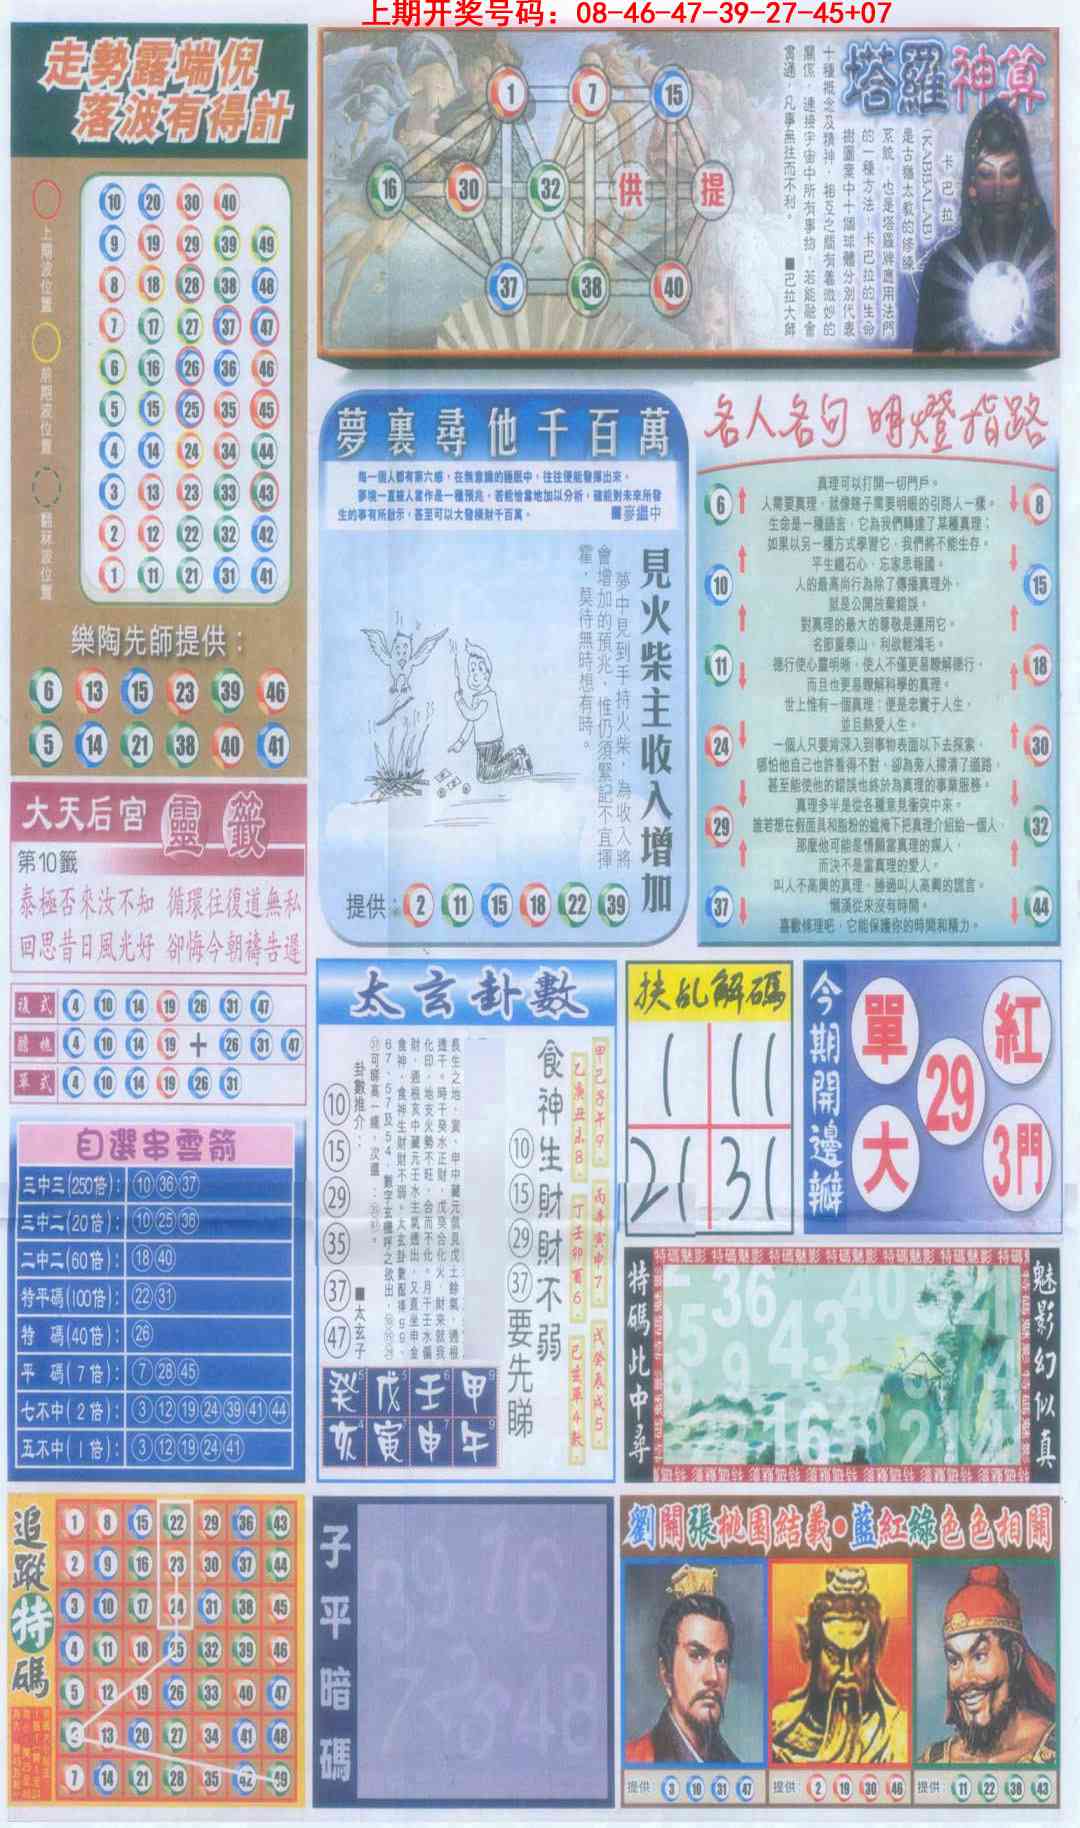 上期开奖号码：08-46-47-39-27-45+07
走勢露端倪
落波有得計
上期波位置
前期波位置
10 20 30 40
9 19 29 39 49
8 18 28 38 48
7 17 27 37 47
6 16 26 36 46
5 15 25 35 45
4 14 24 34 44
3 13 23 33 43
2 12 22 32 42
1 11 21 31 41
樂陶先師提供：
6 13 15 23 39 46
5 14 21 38 40 41
塔羅神算
卡巴拉
(KABBALAB)
是古猶太教的修練
系統，也是塔羅牌應用法門
的一種方法，卡巴拉的生命
樹圖案中十個球體分別代表
十種概念及精神，相互之間有着微妙的
關係，連接宇宙中所有事物，若能融會
貫通，凡事無往而不利。
■巴拉大師
1 7 15
16 30 32 供 提
37 38 40
夢裏尋他千百萬
每一個人都有第六感，在無意識的睡眠中，往往便能發揮出來。
夢境一直被人當作是一種預兆，若能恰當地加以分析，確能對未來所發
生的事有所啟示，甚至可以大發橫財千百萬。
■麥繼中
見火柴主收入增加
夢中見到手持火柴，為收入將
會增加的預兆，惟仍須緊記不宜揮
霍，莫待無時想有時。
提供: 2 11 15 18 22 39
名人名句 明燈指路
真理可以打開一切門戶。
人需要真理，就像瞎子需要明眼的引路人一樣。
生命是一種語言，它為我們轉達了某種真理；
如果以另一種方式學習它，我們將不能生存。
平生鐵石心，忘家思報國。
人的最高尚行為除了傳播真理外，
就是公開放棄錯誤。
對真理的最大的尊敬是運用它。
名節重泰山，利欲輕鴻毛。
德行使心靈明晰，使人不僅更易瞭解德行，
而且也更易瞭解科學的真理。
世上惟有一個真理：便是忠實于人生，
並且熱愛人生。
一個人只要肯深入到事物表面以下去探索，
哪怕他自己也許看得不對，卻為旁人掃清了道路，
甚至能使他的錯誤也終於為真理的事業服務。
真理多半是從各種意見衝突中來。
誰若想在假面具和脂粉的遮掩下把真理介紹給一個人，
那麼他可能是情願當真理的媒人，
而決不是當真理的愛人。
叫人不高興的真理，勝過叫人高興的謊言。
懶漢從來沒有時間。
喜歡條理吧，它能保護你的時間和精力。
6 8
10 15
11 18
24 30
29 32
37 44
大天后宮靈籤
第10籤
泰極否來汝不知 循環往復道無私
回思昔日風光好 卻悔今朝禱告遲
複式 4 10 14 19 26 31 47
膽拖 4 10 14 19 + 26 31 47
單式 4 10 14 19 26 31
自選串雲箭
三中三(250倍)： 10 36 37
三中二(20倍)： 10 25 36
二中二(60倍)： 18 40
特平碼(100倍)： 22 31
特 碼(40倍)： 26
平 碼(7倍)： 7 28 45
七不中(2倍)： 3 12 19 24 39 41 44
五不中(1倍)： 3 12 19 24 41
太玄卦數
甲己子午9。
乙庚丑未8。
丙辛寅申7。
丁壬卯酉6。
戊癸辰戌5。
己亥單4數。
食神生財財不弱
10 15 29 37 要先睇
卦數推介：
10 15 29 35 37 47
■太玄子
癸 戊 壬 甲
亥 寅 申 午
扶乩解碼
1 11
21 31
今期開邊瓣
單 紅
29
大 3門
特碼魅影
特碼此中尋
魅影幻似真
36 43 16
追蹤特碼
1 8 15 22 29 36 43
2 9 16 23 30 37 44
3 10 17 24 31 38 45
4 11 18 25 32 39 46
5 12 19 26 33 40 47
6 13 20 27 34 41 48
7 14 21 28 35 42 49
子平暗碼
39 16
7 23 48
劉關張桃園結義•藍紅綠色色相關
提供: 3 10 31 47
提供: 2 19 30 46
提供: 11 22 38 43